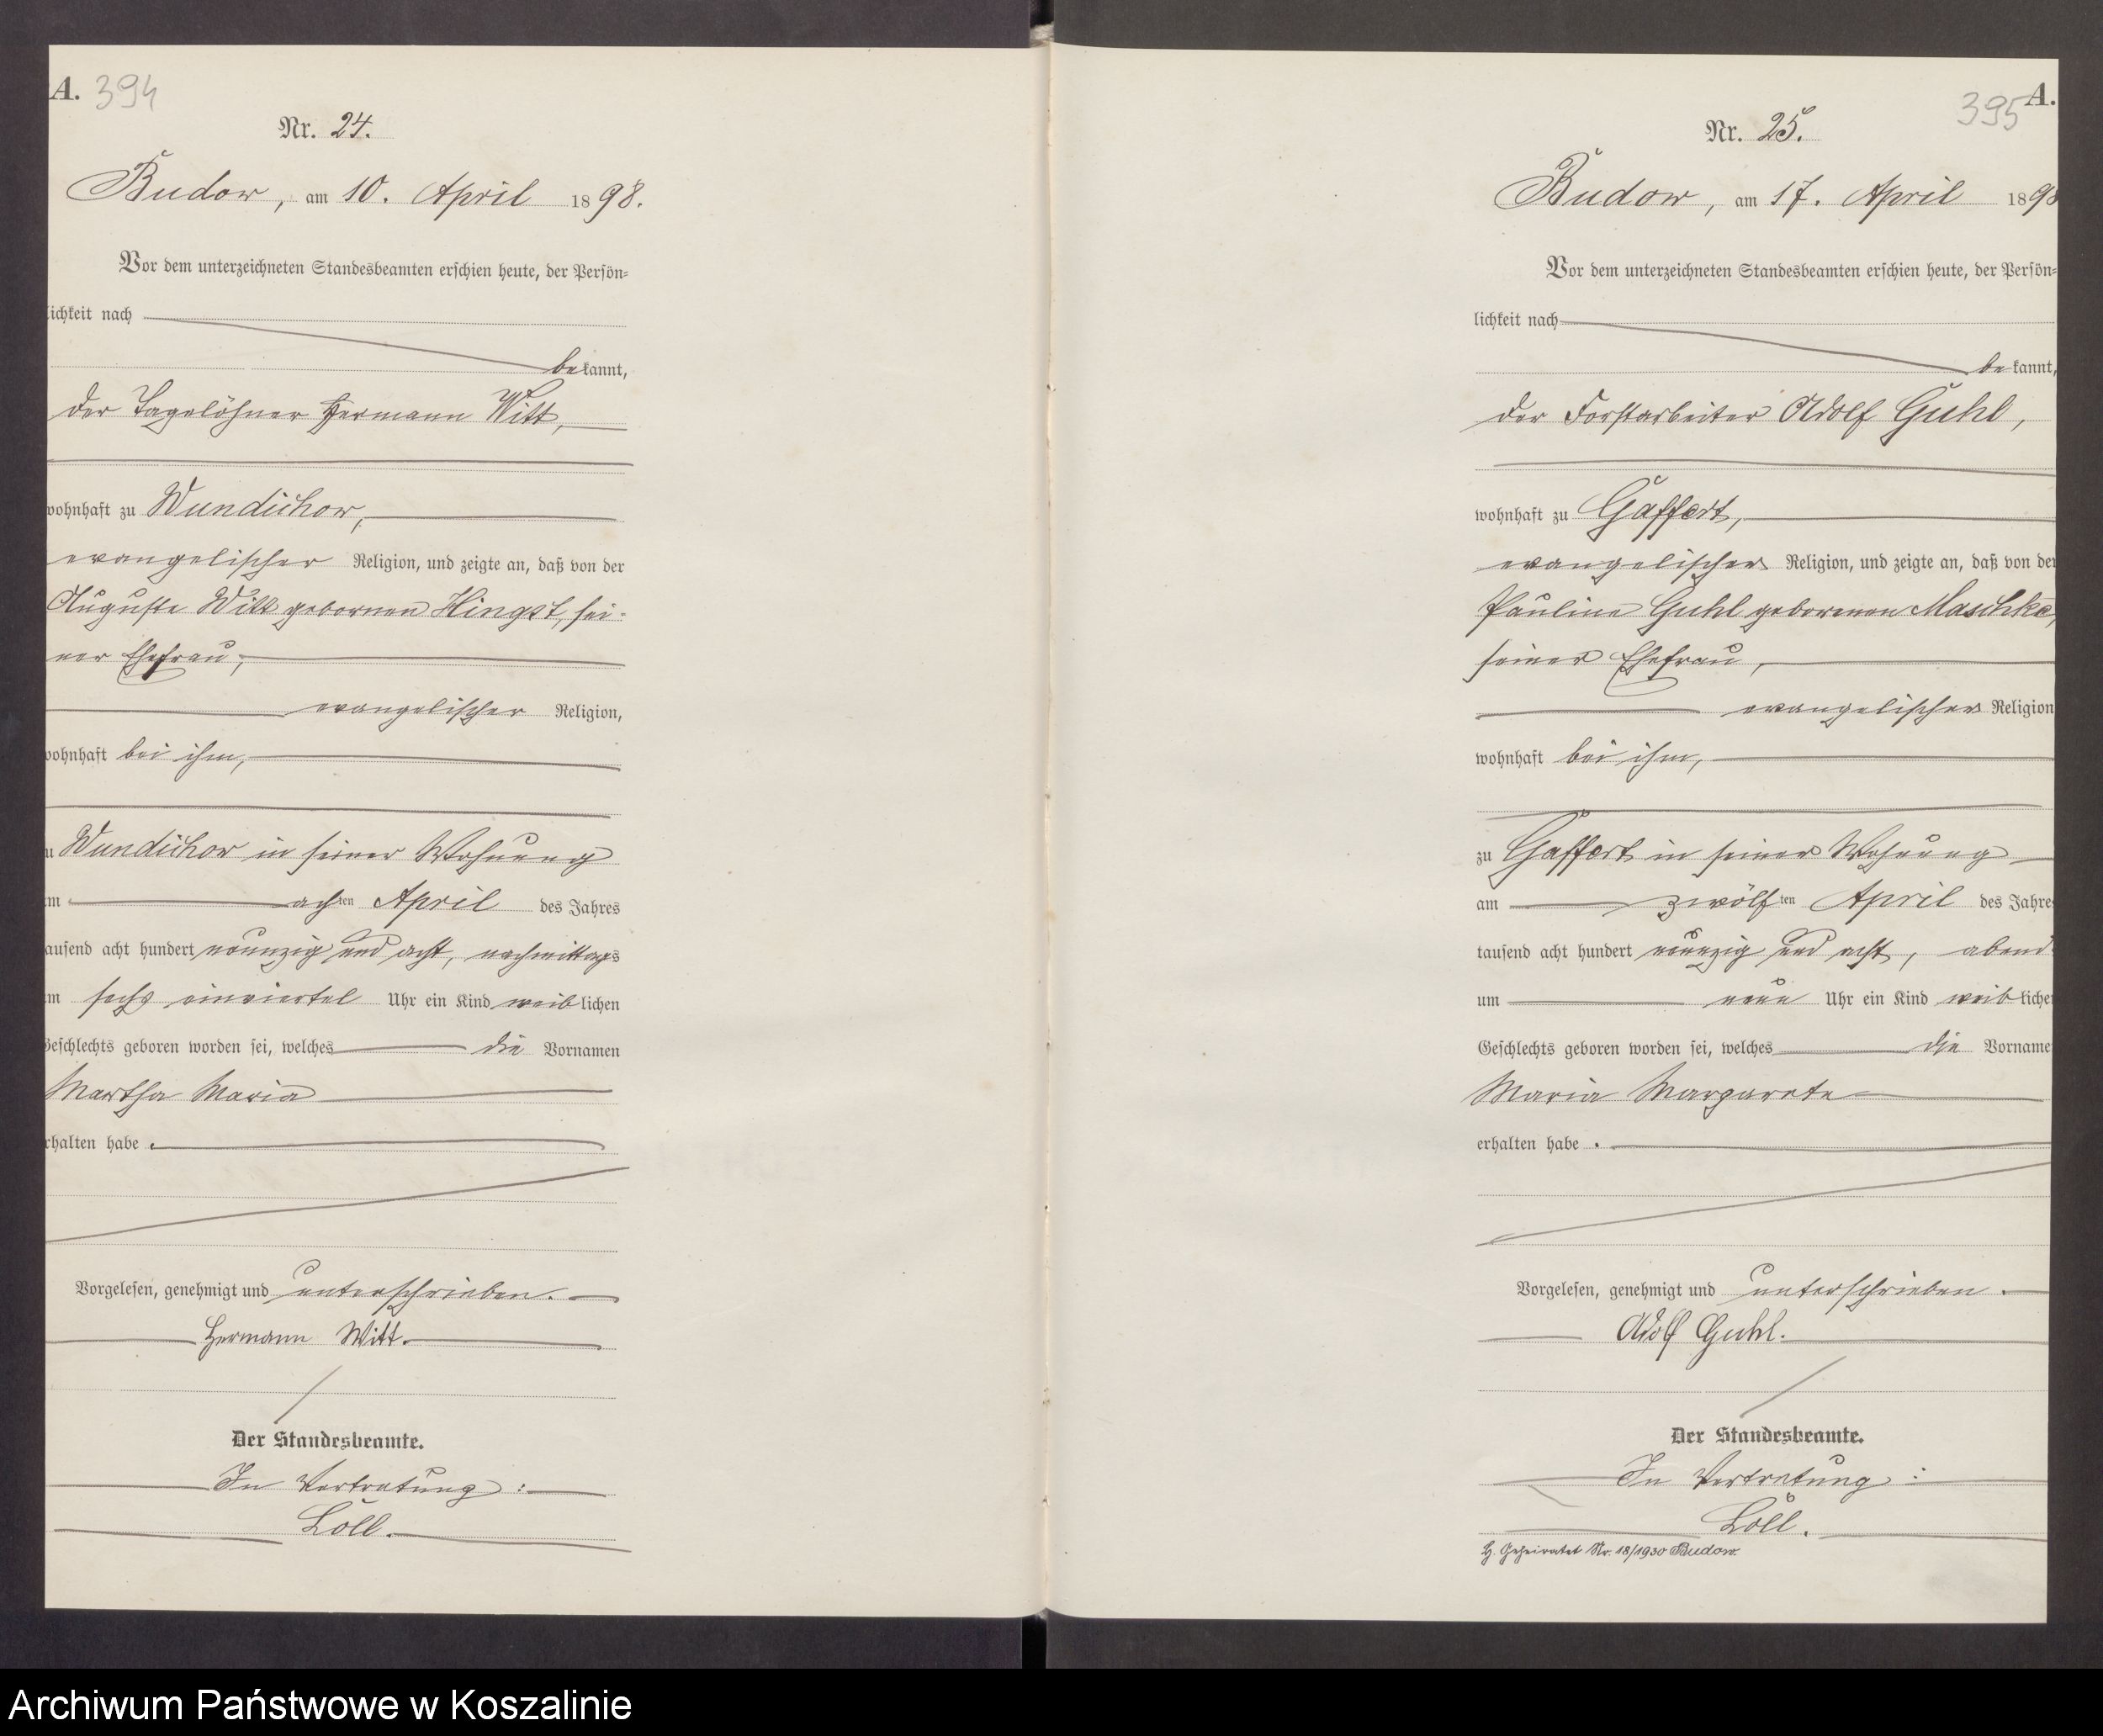 A. 394
Nr. 24.
Budow, am 10. April 1898.
Vor dem unterzeichneten Standesbeamten erschien heute, der Persön-
lichkeit nach
bekannt,
der Tagelöhner Hermann Witt,
wohnhaft zu Wundichow,
evangelischer Religion, und zeigte an, daß von der
Auguste Witt gebornen Hingst, sei-
ner Ehefrau,
evangelischer Religion,
wohnhaft bei ihm,
zu Wundichow in seiner Wohnung
am achten April des Jahres
tausend acht hundert neunzig und acht, nachmittags
um sechs einviertel Uhr ein Kind weiblichen
Geschlechts geboren worden sei, welches die Vornamen
Martha Maria
erhalten habe.
Vorgelesen, genehmigt und unterschrieben.
Hermann Witt.
Der Standesbeamte.
In Vertretung:
Löll.
395 A.
Nr. 25.
Budow, am 17. April 1898
Vor dem unterzeichneten Standesbeamten erschien heute, der Persön-
lichkeit nach
bekannt,
der Forstarbeiter Adolf Guhl,
wohnhaft zu Gaffert,
evangelischer Religion, und zeigte an, daß von der
Pauline Guhl gebornen Maschke,
seiner Ehefrau,
evangelischer Religion
wohnhaft bei ihm,
zu Gaffert in seiner Wohnung
am zwölften April des Jahres
tausend acht hundert neunzig und acht, abend
um neun Uhr ein Kind weiblichen
Geschlechts geboren worden sei, welches die Vorname
Maria Margarete
erhalten habe.
Vorgelesen, genehmigt und unterschrieben.
Adolf Guhl.
Der Standesbeamte.
In Vertretung:
Löll.
H. Geheiratet Nr. 18/1930 Budow.
Archiwum Państwowe w Koszalinie